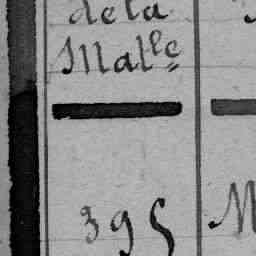 de la
Malle
395 M